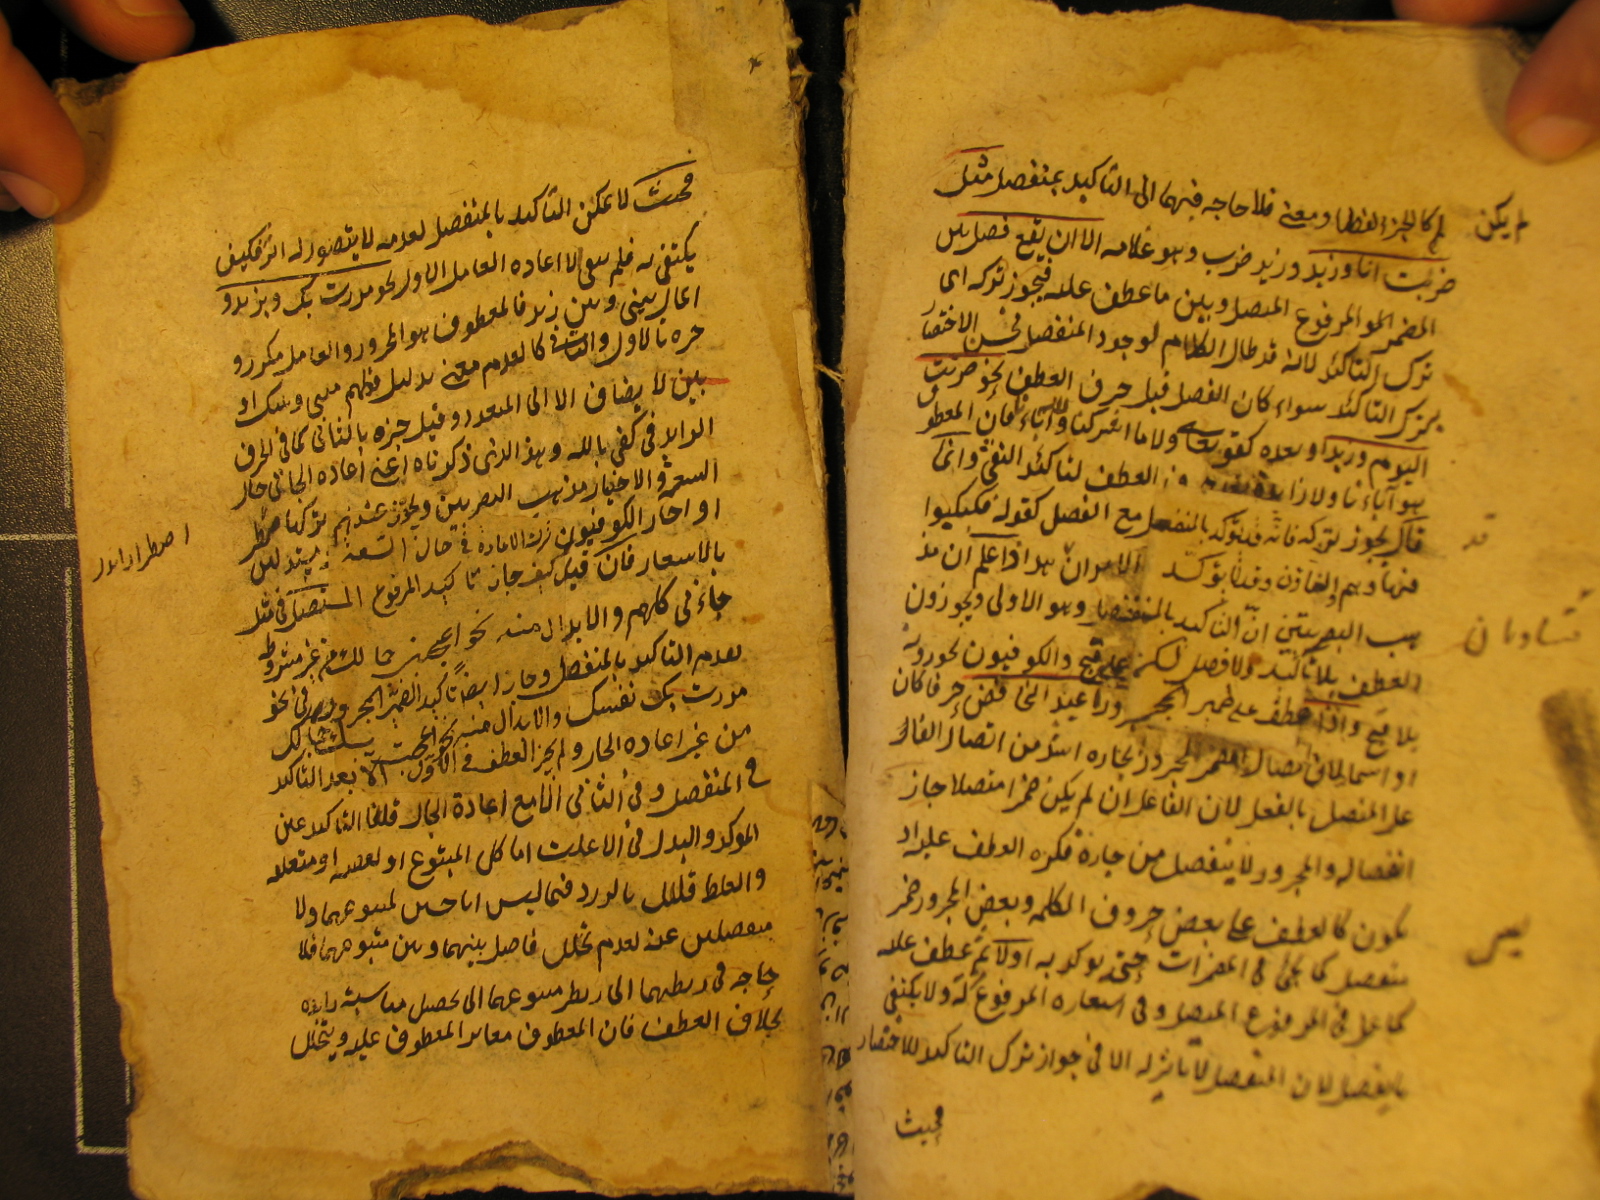 لم يكن كالجزء لفظا ومعنى فلا حاجة فيهما الى التاكيد بمنفصل مثل
ضربت انا وزيد وزيد ضرب هو وغلامه الا ان يقع فصل بين
المضمر المرفوع المتصل وبين ما عطف عليه فيجوز تركه اى
ترك التاكيد لانه قد طال الكلام لوجود المنفصل فحسن الاختصار
بترك التاكيد سواء كان الفصل قبل حرف العطف نحو ضربت
اليوم وزيد او بعده كقوله تعالى ما اشركنا ولا آباؤنا فان المعطوف
هو آباؤنا ولا زايدة بعد العطف لتاكيد النفى وانما
قال يجوز تركه فانه قد يؤكد بالمنفصل مع الفصل كقوله فكبكبوا
فيها هم والغاوون وقد لا يؤكد الامران هذا اعلم ان مذ
هب البصريين ان التاكيد بالمنفصل هو الاولى ويجوزون
العطف بلا تاكيد ولا فصل لكن على قبح والكوفيون يجوزونه
بلا قبح واذا عطف على ضمير المجرور اعيد الخافض حرفا كان
او اسما لان اتصال الضمير المجرور بجاره اشد من اتصال الفاعل
المتصل بالفعل لان الفاعل ان لم يكن ضميرا متصلا جاز
انفصاله والمجرور لا ينفصل من جاره فكره العطف عليه اذ
يكون كالعطف على بعض حروف الكلمة وبعض المجرور ضمير
منفصل كما يجئ فى المضمرات حتى يوكد به اولا ثم عطف عليه
كما عمل فى المرفوع المتصل وفى استعارة المرفوع له ولا يكتفى
بالفصل لان الفصل لا تاثير له الا فى جواز ترك التاكيد للاختصار
فحيث
فحيث لا يمكن التاكيد بالمنفصل لعدمه لا يتصور له اثر فكيف
يكتفى به فلم يبق الا اعادة العامل الاول نحو مررت بك وبزيد و
المال بينى وبين زيد فالمعطوف هو المجرور والعامل مكرر و
جره بالاول والثانى كالعدم معنى بدليل قولهم بينى وبينك اذ
بين لا يضاف الا الى المتعدد وقيل جره بالثانى كما فى الحرف
الزايد فى كفى بالله وهذا الذى ذكرناه اعنى اعادة الجار فى حال
السعة والاختيار مذهب البصريين ويجوز عندهم تركها اضطرارا
واجاز الكوفيون ترك الاعادة فى حال السعة مستدلين
بالاشعار فان قيل كيف جاز تاكيد المرفوع المتصل فى مثل
جاءنى كلهم والابدال منه نحو اعجبتنى جمالك من غير شرط
تقدم التاكيد بالمنفصل وجاز ايضا تاكيد الضمير المجرور فى نحو
مررت بك نفسك والابدال منه نحو اعجبت بك جمالك
من غير اعادة الجار ولم يجز العطف فى الاول الا بعد التاكيد
بالمنفصل وفى الثانى الا مع اعادة الجار قلنا التاكيد عين
الموكد والبدل فى الاغلب اما كل المتبوع او بعضه او متعلقه
والغلط قليل نادر فهما ليسا باجنبيين لمتبوعهما ولا
منفصلين عنه لعدم تخلل فاصل بينهما وبين متبوعهما فلا
حاجة فى ربطهما الى متبوعهما الى تحصيل مناسبة زايدة
بخلاف العطف فان المعطوف مغاير المعطوف عليه ويتخلل